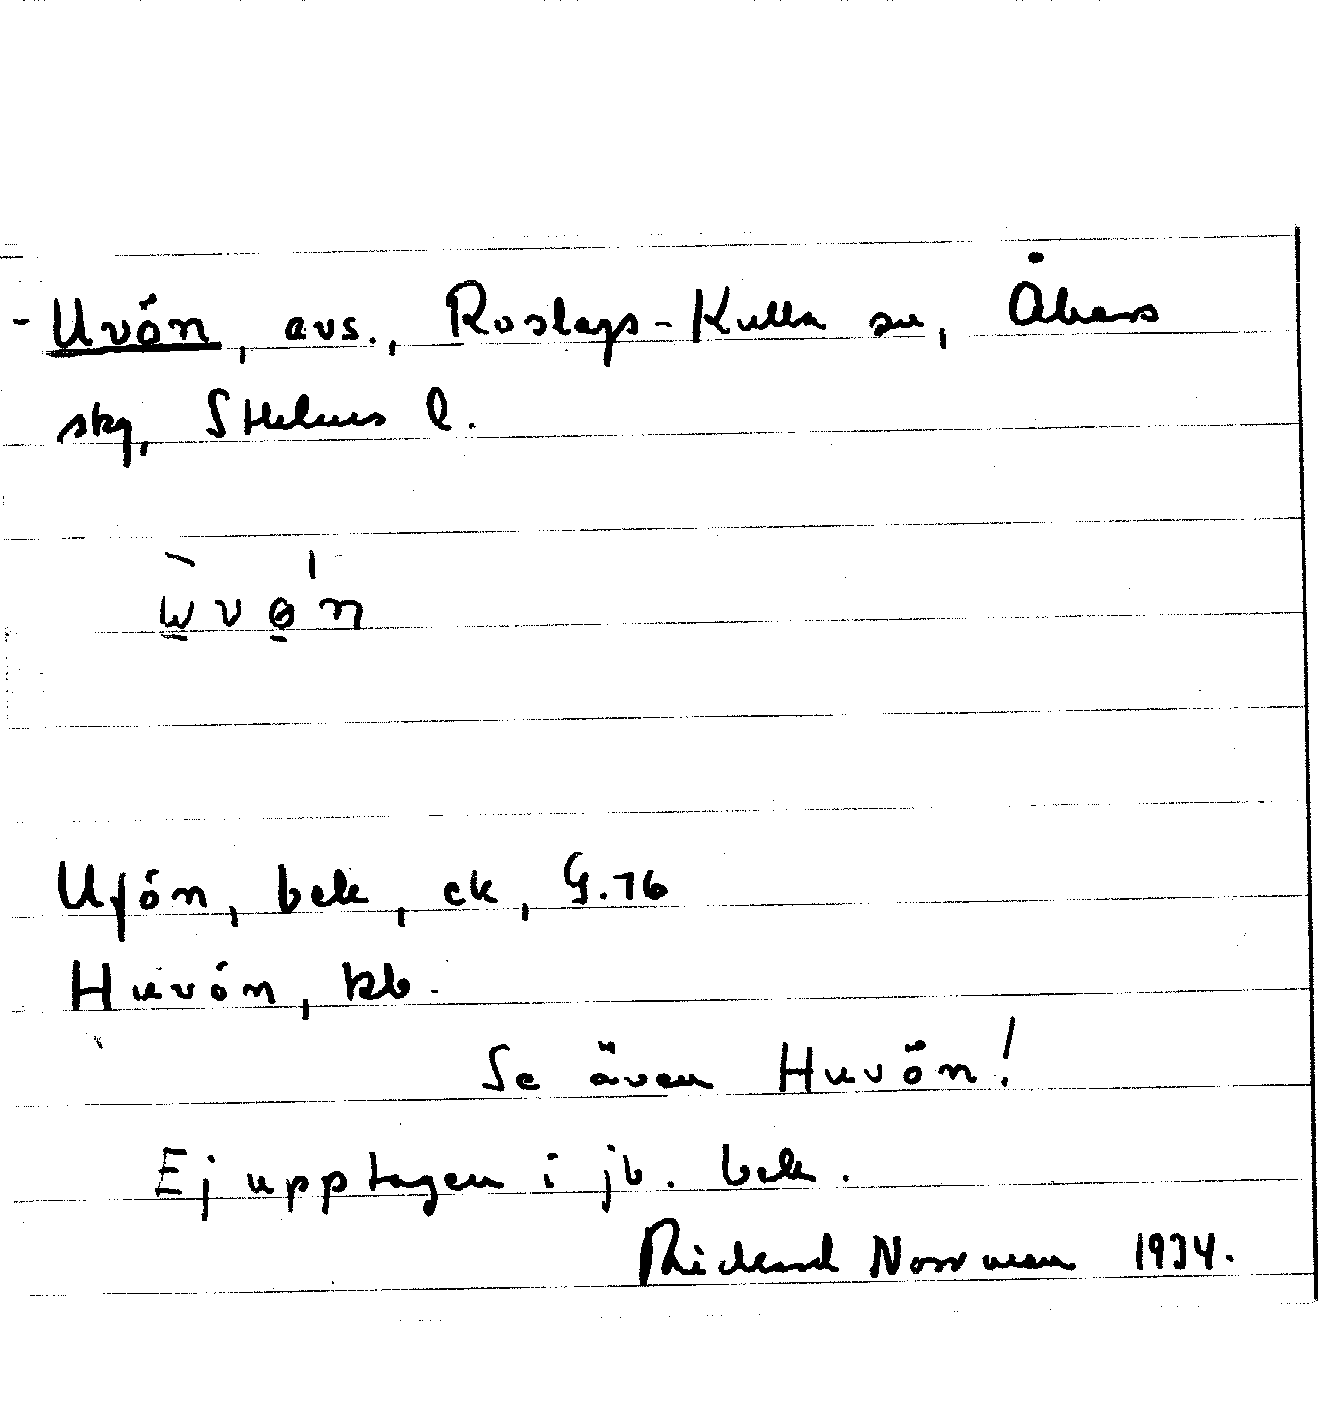 - Uvön, avs., Roslags-Kulla sn, Åkers
skg, Sthlms l.
ẁ v ɵ́ n
Ufön, bek, ek, G.76
Huvön, kb.
Se även Huvön!
Ej upptagen i jb. bek.
Rickard Norrman 1934.